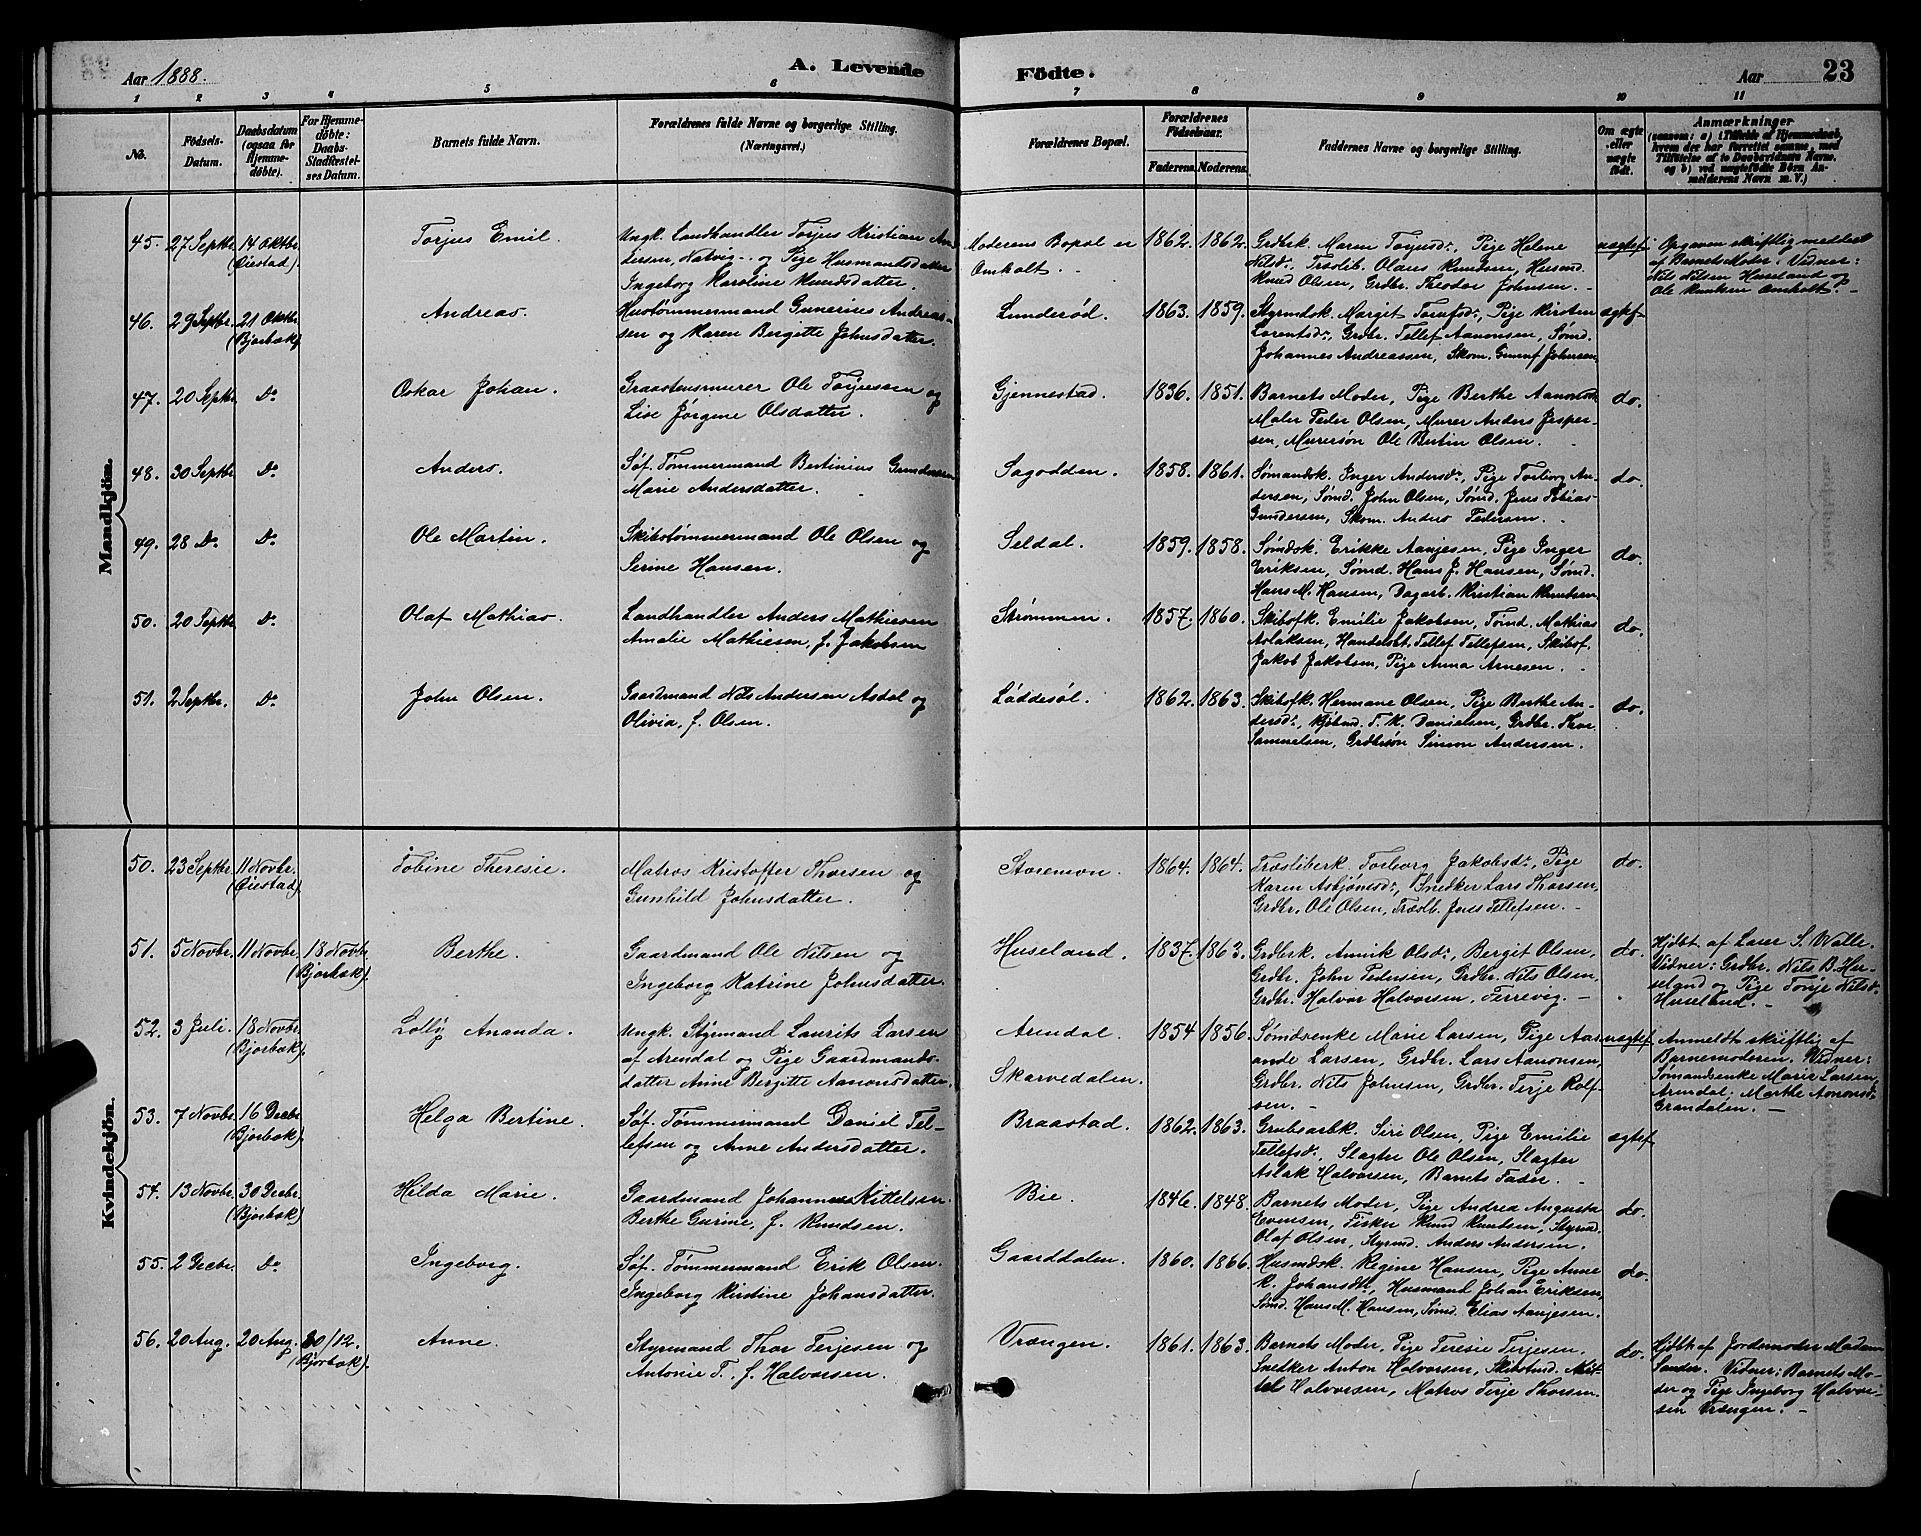 Aar 1888.
A. Levende Födte.
Aar 23
1 2 3 4 5 6 7 8 9 10 11
No.
Födsels-Datum.
Daabsdatum (ogsaa for Hjemme-döbte).
For Hjemme-döbte: Daabs-Stadfæstel-ses Datum.
Barnets fulde Navn.
Forældrenes fulde Navne og borgerlige Stilling. (Næringsvei.)
Forældrenes Bopæl.
Forældrenes Födselsaar.
Faderens. Moderens.
Faddernes Navne og borgerlige Stilling.
Om ægte eller uægte födt.
Anmærkninger
(saasom: a) i Tilfælde af Hjemmedaab,
hvem der har forrettet samme, med
Tilføielse af to Daabsvidners Navne.
og b) ved uægtefödte Börn An-
melderens Navn m. V.)
Mandkjön.
45. 27 Septbr. 14 Oktbr. (Øiestad). Torjus Emil.
Ungk. Landhandler Torjus Kristian An-
dersen, Natvig - og Pige Husmantsdatter
Ingeborg Karoline Knudsdatter.
Moderens Bopæl er
Omholt. -
1862. 1862.
Grdbrk. Maren Torjusdr., Pige Helene
Nilsdr., Træslib. Olaus Knudsen, Husmd.
Knud Olsen, Grdbr. Theodor Johnsen. -
uægtef.
Opgaven skriftlig meddelt
af Barnets Moder. Vidner:
Nils Nilsen Huseland og
Ole Knutsen Omholt. -
46. 29 Septbr. 21 Oktbr. (Bjorbæk). Andreas.
Hustømmermand Gunerius Andreas-
sen og Karen Bergitte Johnsdatter.
Lunderød.
1863. 1859.
Styrmdsk. Margit Torsdr., Pige Kirsten
Larentsdr., Grdbr. Tellef Aanonsen, Sømd.
Johannes Andreassen, Skom. Gunuf Johnsen.
ægtef
47. 20 Septbr. Do Oskar Johan.
Graastensmurer Ole Torjussen og
Lise Jørgine Olsdatter.
Gjennestad.
1836. 1851.
Barnets Moder, Pige Berthe Aanonsdr.
Maler Peder Olsen, Murer Anders Jesper-
sen, Murersøn Ole Bertin Olsen.
do.
48. 30 Septbr. Do Anders.
Søf. Tømmermand Bertinius Gundersen
Marie Andersdatter.
Sagodden.
1858. 1861.
Sømandsk. Inger Andersdr., Pige Torborg An-
dersen, Sømd. John Olsen, Sømd. Jens Tobias
Gundersen, Skom. Anders Pedersen.
do.
49. 28 Do. Do Ole Martin.
Skibstømmermand Ole Olsen og
Serine Hansen.
Seldal.
1859. 1858.
Sømdsk. Erikke Aanjesen, Pige Inger
Eriksen, Sømd. Hans J. Hansen, Sømd.
Hans M. Hansen, Dagarb. Kristian Knudsen.
do.
50. 20 Septbr. Do Olaf Mathias.
Landhandler Anders Mathiesen
Amalie Mathiesen, f. Jakobsen
Strømmen.
1857. 1860.
Skibsfk. Emilie Jakobsen, Tømd. Mathias
Aslaksen, Handelsbt. Tellef Tellefsen, Skibsf.
Jakob Jakobsen, Pige Anna Arnesen.
do.
51. 2 Septbr. Do John Olsen.
Gaardmand Nils Andersen Asdal og
Olivia, f. Olsen.
Løddesøl.
1862. 1863.
Skibsfk. Hermane Olsen, Pige Berthe An-
dersdr., Kjøbmd. T. K. Danielsen, Grdbr. Thor
Samuelsen, Grdbrsøn Simon Andersen.
do.
Kvindekjön.
50. 23 Septbr. 11 Novbr. (Øiestad) Tobine Theresie.
Matros Kristoffer Thorsen og
Gunhild Johnsdatter.
Storemon.
1864. 1864.
Træsliberk. Torborg Jakobsdr., Pige
Karen Asbjønsdr., Snedker Lars Thorsen,
Grdbr. Ole Olsen, Træslb. Jens Tellefsen. -
do.
51. 5 Novbr. 11 Novbr. 18 Novbr. (Bjorbæk). Berthe.
Gaardmand Ole Nilsen og
Ingeborg Katrine Johnsdatter.
Huseland.
1837. 1863.
Grdbrk. Annik Olsdr., Bergit Olsen,
Grdbr. John Pedersen, Grdbr. Nils Olsen,
Grdbr. Halvor Halvorsen, Ferrevig. -
do.
Hjdbt af Lærer S. Walle.
Vidner: Grdbr. Nils B. Hu-
seland og Pige Tonje Nilsdr.
Huseland. -
52. 3 Juli. 18 Novbr. (Bjorbæk). Lolly Ananda.
Ungk. Styrmand Laurits Larsen
af Arendal og Pige Gaardmands-
datter Anne Bergitte Aanonsdatter.
Arendal.
Skarvedalen.
1854 1856.
Sømdsenke Marie Larsen, Pige Aas-
ande Larsen, Grdbr. Lars Aanonsen,
Grdbr. Nils Johnsen, Grdbr. Terje Rolf-
sen. -
uægtef
Anmeldt skriftlig af
Barnemoderen. Vidner:
Sømandsenke Marie Larsen,
Arendal; Marthe Aanonsdr.
Grandalen. -
53. 7 Novbr. 16 Decbr. (Bjorbæk). Helga Bertine.
Søf. Tømmermand Daniel Tel-
lefsen og Anne Andersdatter.
Braastad.
1862. 1863.
Grubearbk. Siri Olsen, Pige Emilie
Tellefsdr., Slagter Ole Olsen, Slagter
Aslak Halvorsen, Barnets Fader. -
ægtef
54. 13 Novbr. 30 Decbr. (Bjorbæk) Hilda Marie.
Gaardmand Johannes Kittelsen.
Berthe Gurine, f. Knudsen.
Bie.
1846. 1848.
Barnets Moder, Pige Andrea Augusta
Evensen, Fisker Knud Knudsen, Styrmd.
Olaf Olsen, Styrmd. Anders Andersen.
do.
55. 2 Decbr. Do Ingeborg.
Søf. Tømmermand Erik Olsen.
Ingeborg Kirstine Johansdatter.
Gaarddalen.
1860. 1866.
Husmdsk. Regine Hansen, Pige Anne
K. Johansdr., Husmand Johan Eriksen,
Sømd. Hans M. Hansen, Sømd. Elias Aanjesen.
do.
56. 20 Aug. 20 Aug. 30/12. (Bjorbæk). Anne.
Styrmand Thor Terjesen og
Antonie T. f. Halvorsen.
Vrængen.
1861. 1863.
Barnets Moder, Pige Teresie Terjesen,
Snedker Anton Halvorsen, Skibstmd. Kit-
tel Halvorsen, Matros Terje Thorsen.
do.
Hjdbt af Jordemoder Madam
Sander. Vidner: Barnets Mo-
der og Pige Ingeborg Halvor-
sen Vrængen. -